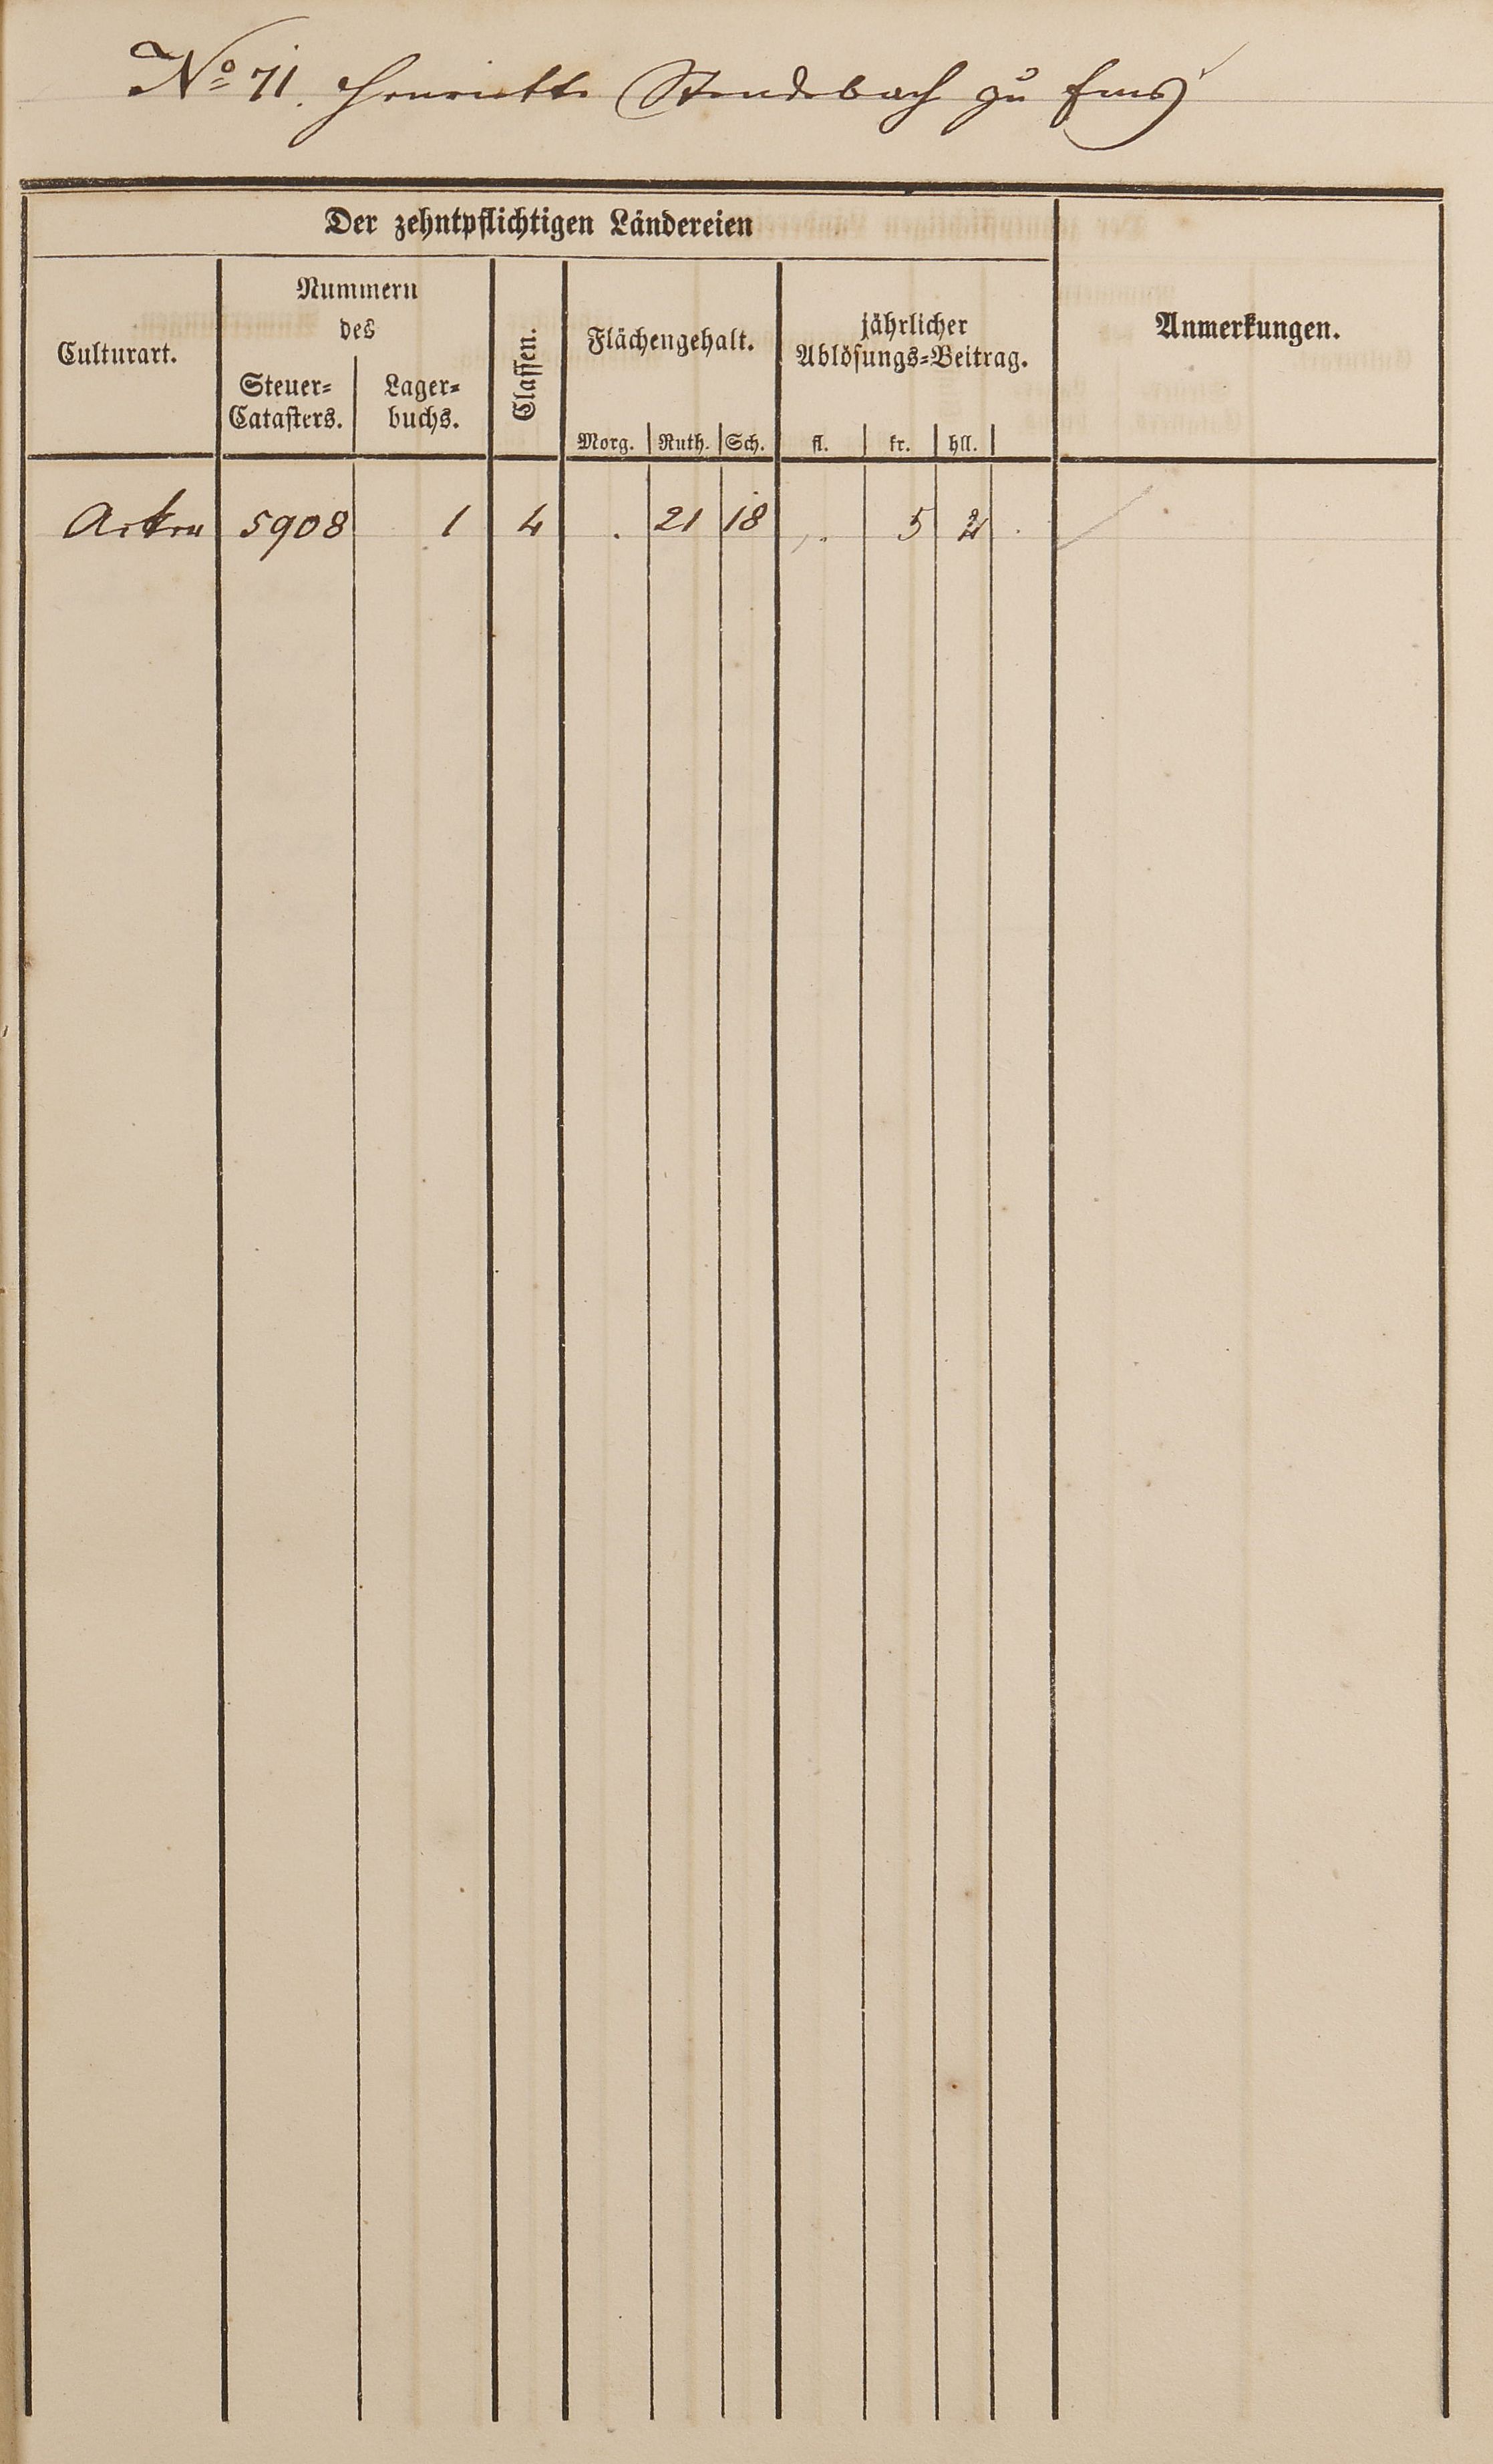 No 71. Henriette Stendebach zu Ems
Der zehntpflichtigen Ländereien
Culturart.
Nummern
des
Steuer-
Catasters.
Lager-
buchs.
Classen.
Flächengehalt.
Morg. Ruth. Sch.
jährlicher
Ablösungs-Beitrag.
fl. kr. hll.
Anmerkungen.
5908 1 4 . 21 18 . 5 2 .